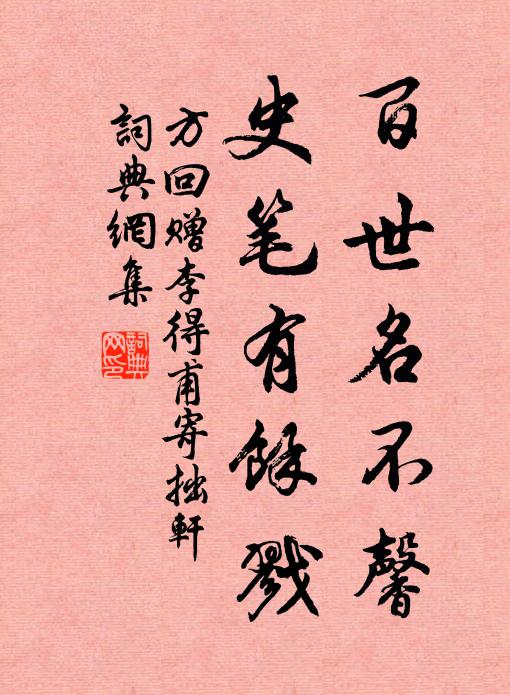 百世名不馨
史笔有餘戮
方回赠李得甫寄拙軒
詞典網集
詞典网印